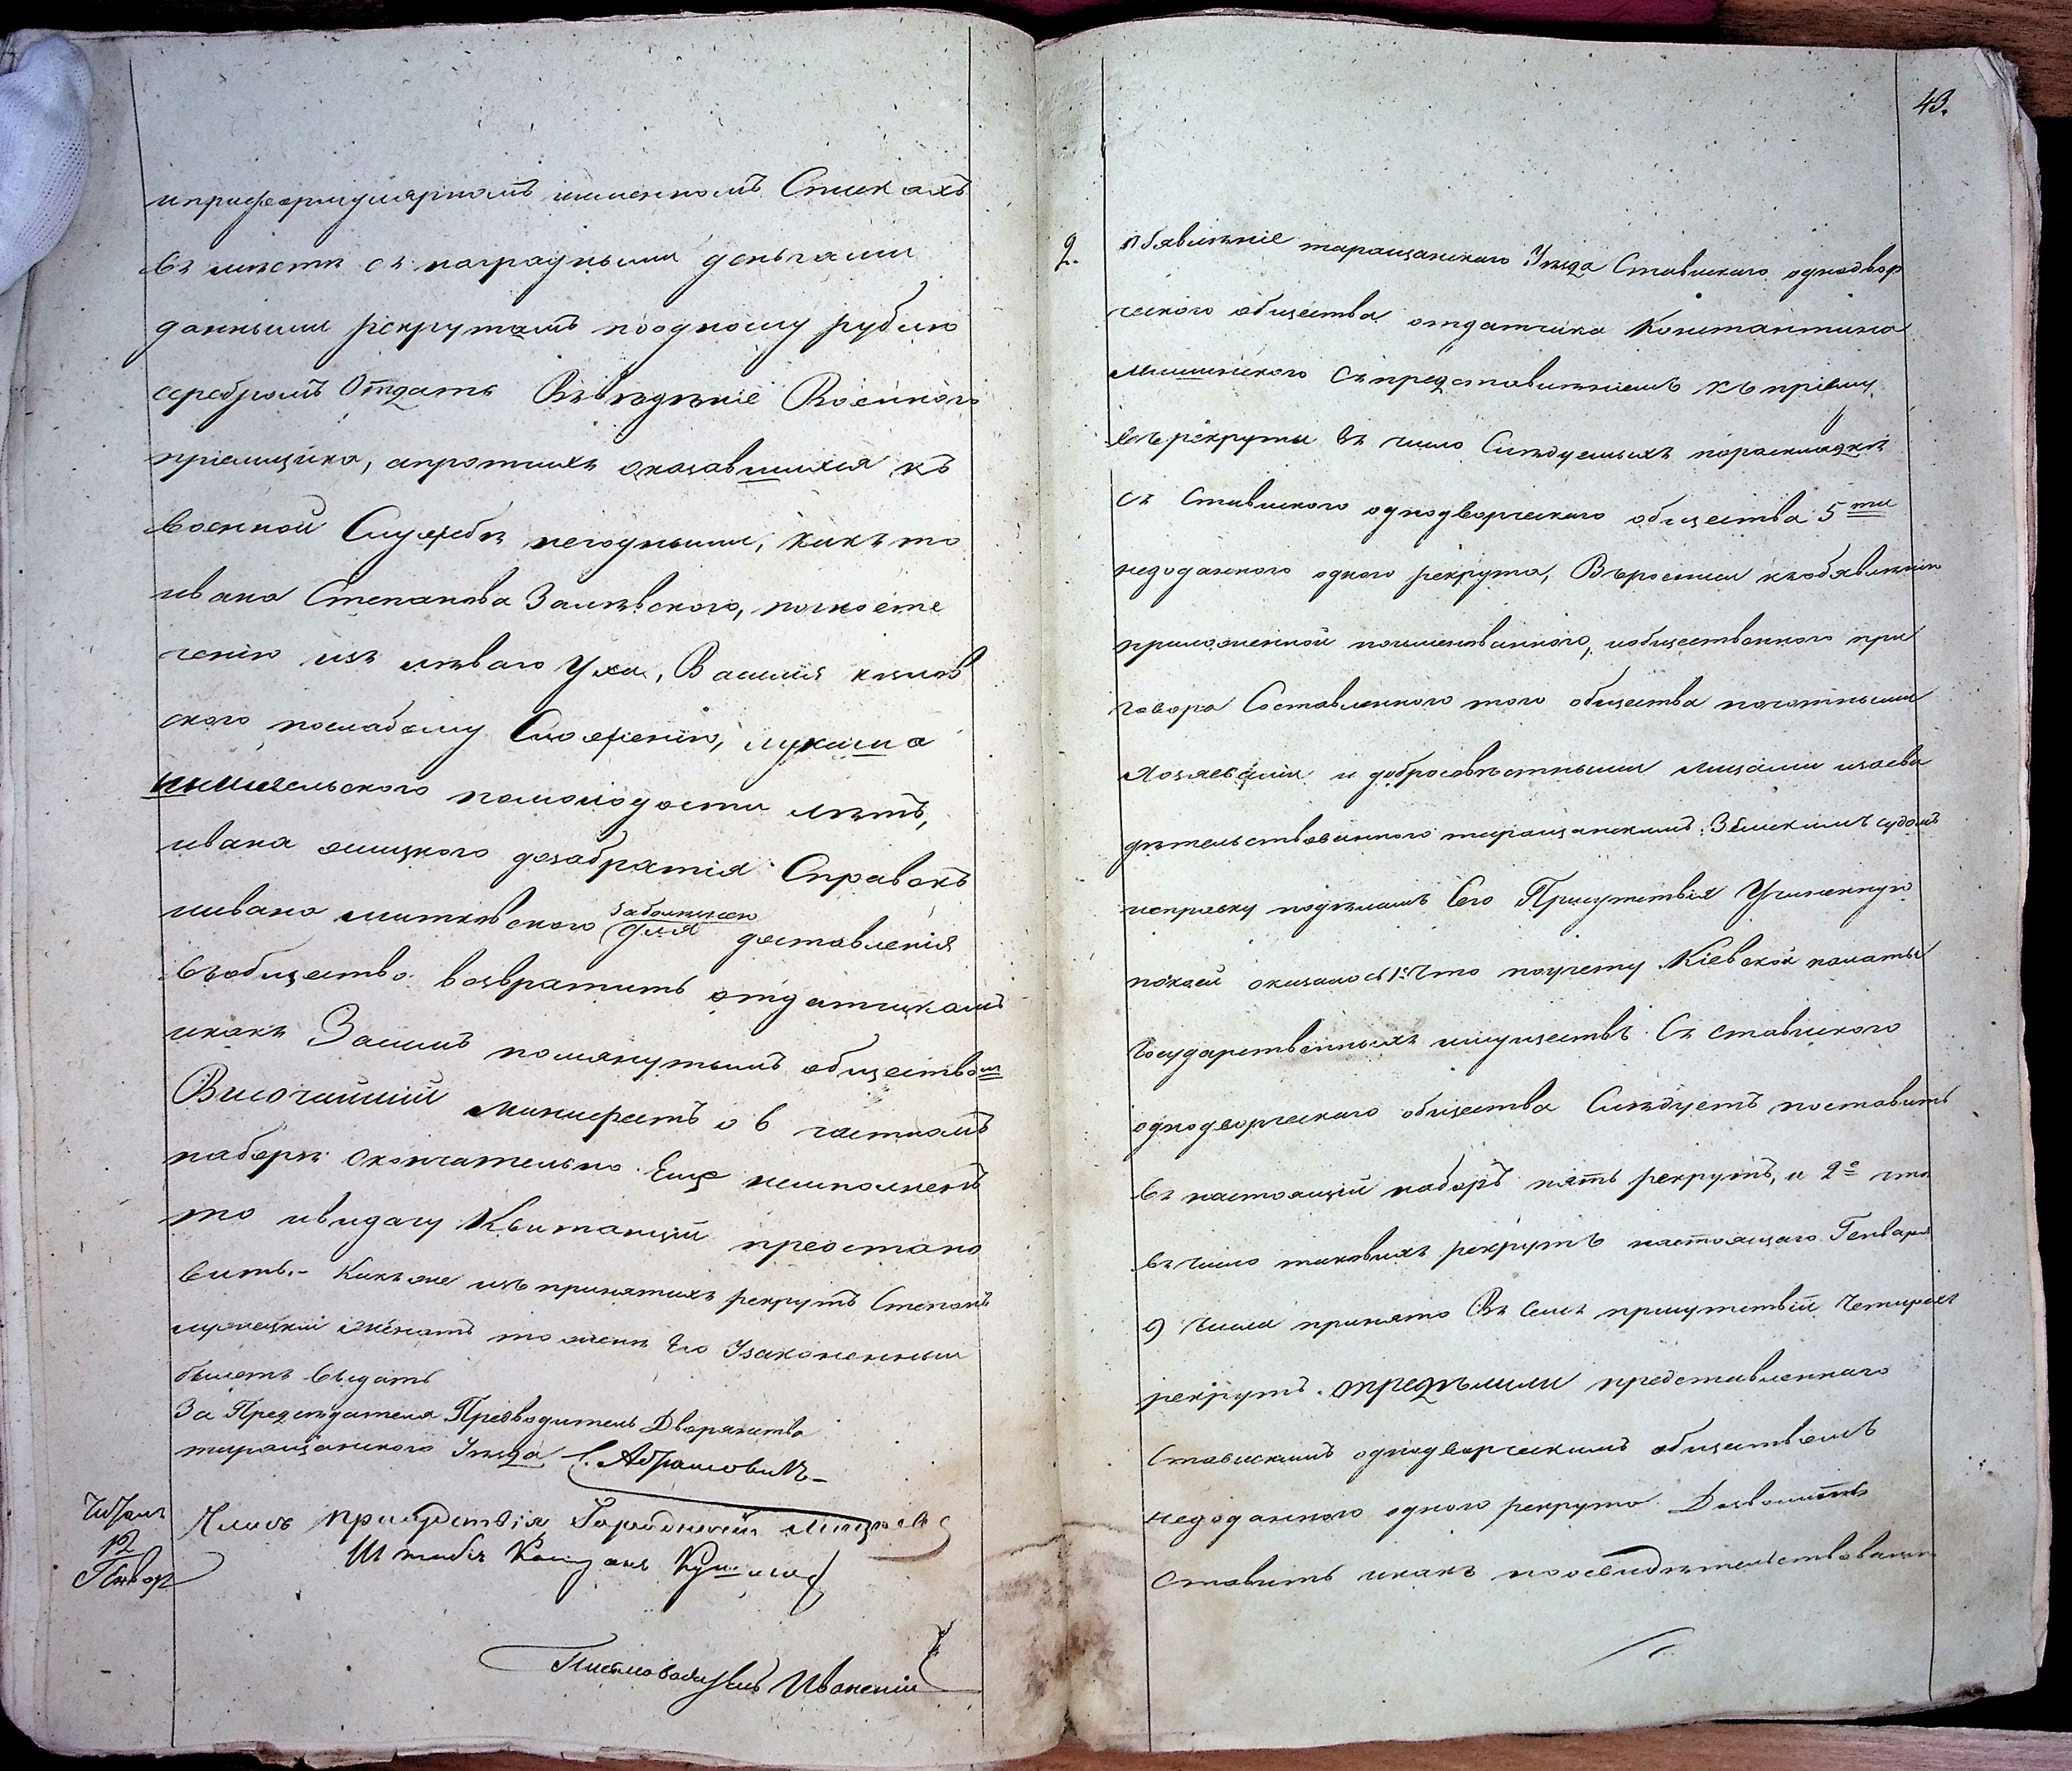 ипри формулярномъ именномъ Спискахъ
въ месте съ наградными деньгами
данными рекрутамъ поодному рублю
серебромъ Отдать Въвъдъніе Военного
пріемщика, апротчихъ оказавшихся къ
военной Службъ негодными, какъ то
ивана Степанова Залъвского, по
ченію изъ лъваго Уха, Василія
ского послабому Сложенію, лукаша
помолодости лътъ,
ивана дозабратія Справокъ
иивана митковского для доставленія
въобщество возвратить отдатчикамъ
икакъ Засимъ помянутымъ обществом
Височайшій Манифестъ о 6 частномъ
наборъ окончательно Еще неисполненъ
то ивидачу Квитанцій преостано
вить.- Какъже изъ принятихъ рекрутъ Степанъ
женатъ то женъ Его Узаконенный
билетъ выдать
За Предсъдателя Предводитель Дворянства
таращанского Уъзда С. Абрамовичъ
Читалъ
12
Генвар
Членъ присудствія Городничій
Штабсъ Капитанъ
Письмоводитель Иваненій
43.
2. обявлъніе таращанского Уъзда Ставиского однодвор
ческого общества отдатчика Константина
Мишинского Съпредставлъніемъ къ пріему
въ рекруты въ число Слъдуемыхъ пораскладкъ
съ Ставиского однодворческого общества 5 ти
недоданного одного рекрута, Въросписи кобявлънію
приложенной поименованного, иобщественного при
говора Составленного того общества почотными
Хозяевами и добросовъстными лицами изасви
дътельствованного таращанскимъ Земскимъ судомъ
исправку подъламъ Сего Присутствія Учиненную
покоей оказалось 1е Что поучету Кіевской палаты
Государственныхъ имуществъ Съ ставиского
однодворческаго общества Слъдуетъ поставить
въ настоящій наборъ пять рекрутъ, и 2е что
въ число таковыхъ рекрутъ настоящаго Генваря
9 числа принято Въ Семъ присутствіи Четирехъ
рекрутъ. опредълили представленнаго
Ставискимъ однодворческимъ обществомъ
недоданного одного рекрута Дозволить
Ставить икакъ поосвидътельствованію